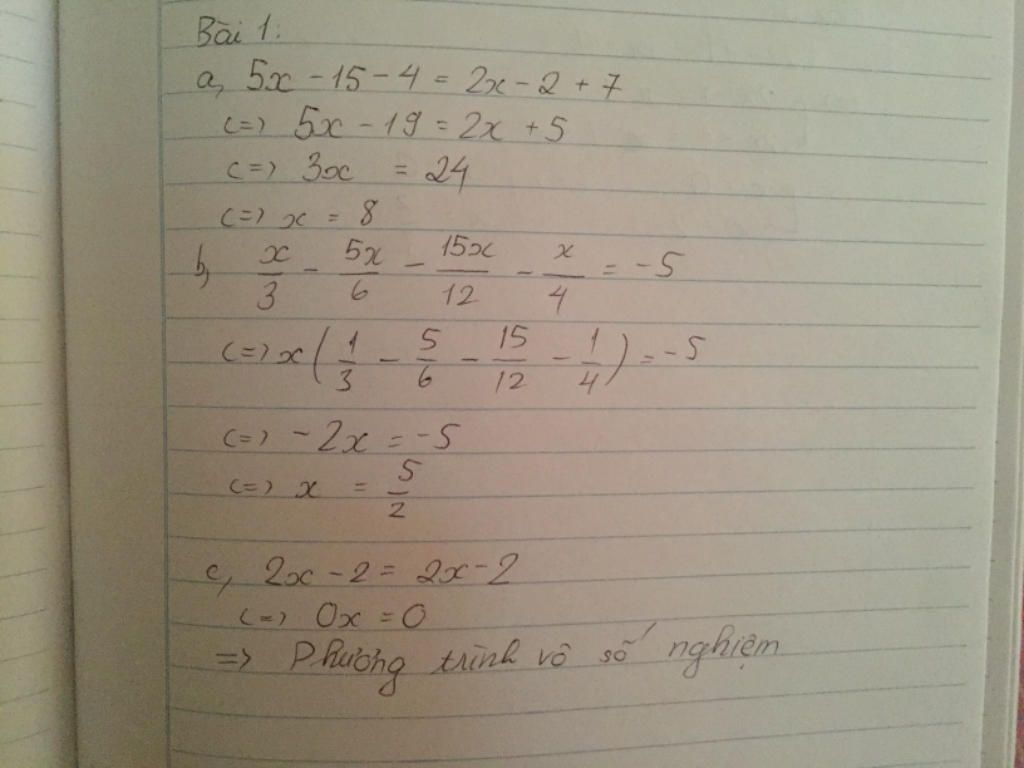 Bài 1:
a, 5x - 15 - 4 = 2x - 2 + 7
<=> 5x - 19 = 2x + 5
<=> 3x = 24
<=> x = 8
b, x/3 - 5x/6 - 15x/12 - x/4 = -5
<=> x(1/3 - 5/6 - 15/12 - 1/4) = -5
<=> -2x = -5
<=> x = 5/2
c, 2x - 2 = 2x - 2
<=> 0x = 0
=> Phương trình vô số nghiệm